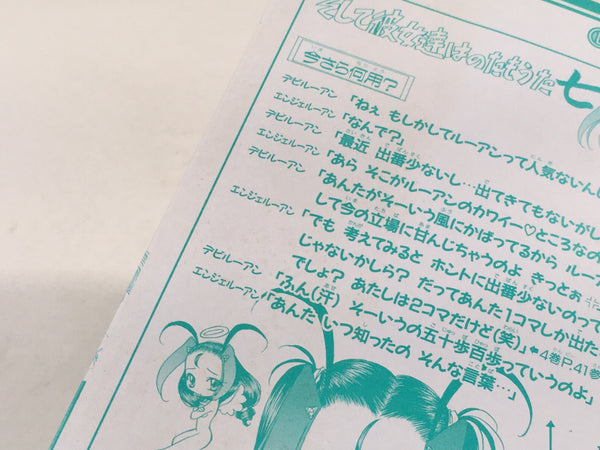 そして彼女達はのたもうた
今さら何用？
デビルーアン「ねぇ もしかしてルーアンって人気ないんじ
エンジェルーアン「なんで？」
デビルーアン「最近 出番少ないし…出てきてもないがし
エンジェルーアン「あら そこがルーアンのカワイー♡ところなの
デビルーアン「あんたがそーいう風にかばってるから ルー
して今の立場に甘んじちゃうのよ きっとぉ
エンジェルーアン「でも 考えてみると ホントに出番少ないのって
じゃないかしら？ だってあんた1コマしか出た
でしょ？ あたしは2コマだけど(笑)」←4巻P.41参
デビルーアン「ふん(汗) そーいうの五十歩百歩っていうのよ」
エンジェルーアン「あんた いつ知ったの そんな言葉…」